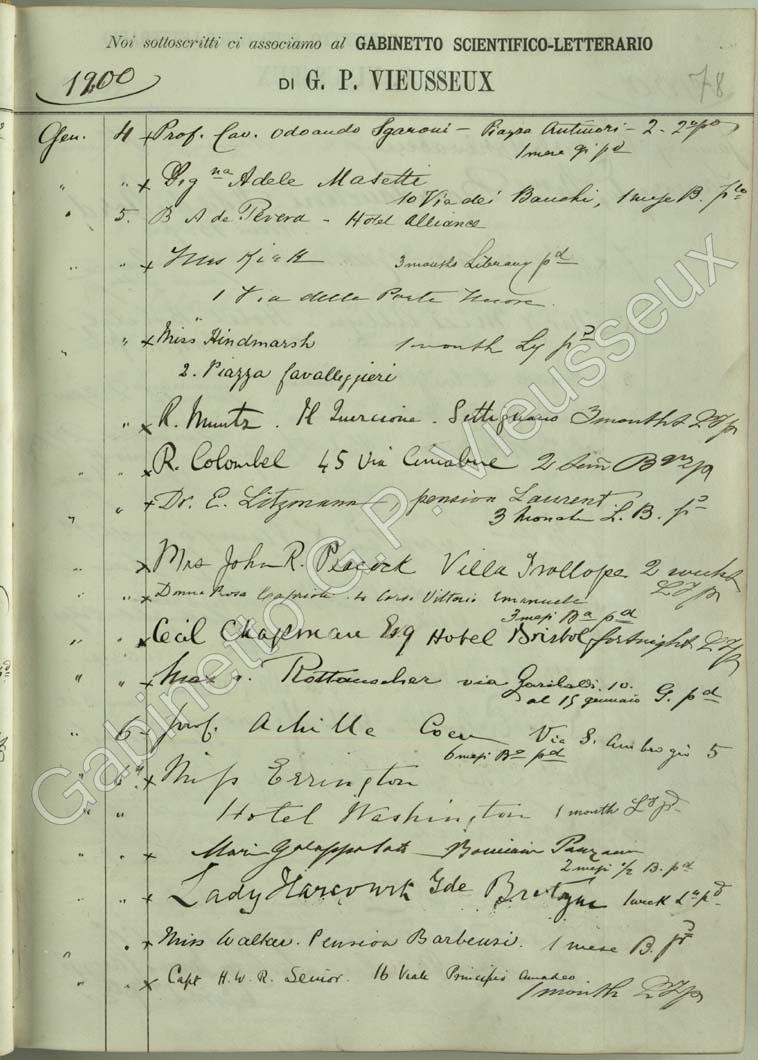 Noi sottoscritti ci associamo al GABINETTO SCIENTIFICO-LETTERARIO
1900
DI G. P. VIEUSSEUX
78
Gen. 4 x Prof. Cav. Odoardo Sgaroni - Piazza Antinori - 2 -
1 mese
" " x Sig na Adele Masetti
10 Via dei Banchi, 1 mese B.
" 5. B A de Pevera - Hotel Alliance
" " x Mrs Kirk 3 months Library pd
1 Via della Porta
" x Miss Hindmarsh 1 month Ly pd
2. Piazza Cavalleggieri
" x R. Muntz. Il Quercione. Settignano 3 months
x R. Colombel 45 Via Cimabue 2
" " x Dr. E. Litzmann, pension Laurent
3 Monate L. B. pd
x Mrs John R. Peacock Villa Trollope 2 weeks
" " x Donna Rosa Corso Vittorio Emanuele
3 mesi Ba pd
" " x Cecil Chapman Esq Hotel Bristol fortnight
" " x Rottauscher via Garibaldi. 10.
al 15 gennaio G. pd
" 6 - Prof. Achille Coen Via S. Ambrogio 5
6 mesi Bo pd
" 6 " x Miss Errington
" " Hotel Washington 1 month
" x
2 mesi 1/2 B. pd
" x Lady Harcourt Gde Bretagne 1 week
" x Miss Walker. Pension Barbensi. 1 mese B. pd
" x Capt H. W. R. Senior. 16 Viale Principe Amadeo
1 month
Gabinetto G.P. Vieusseux